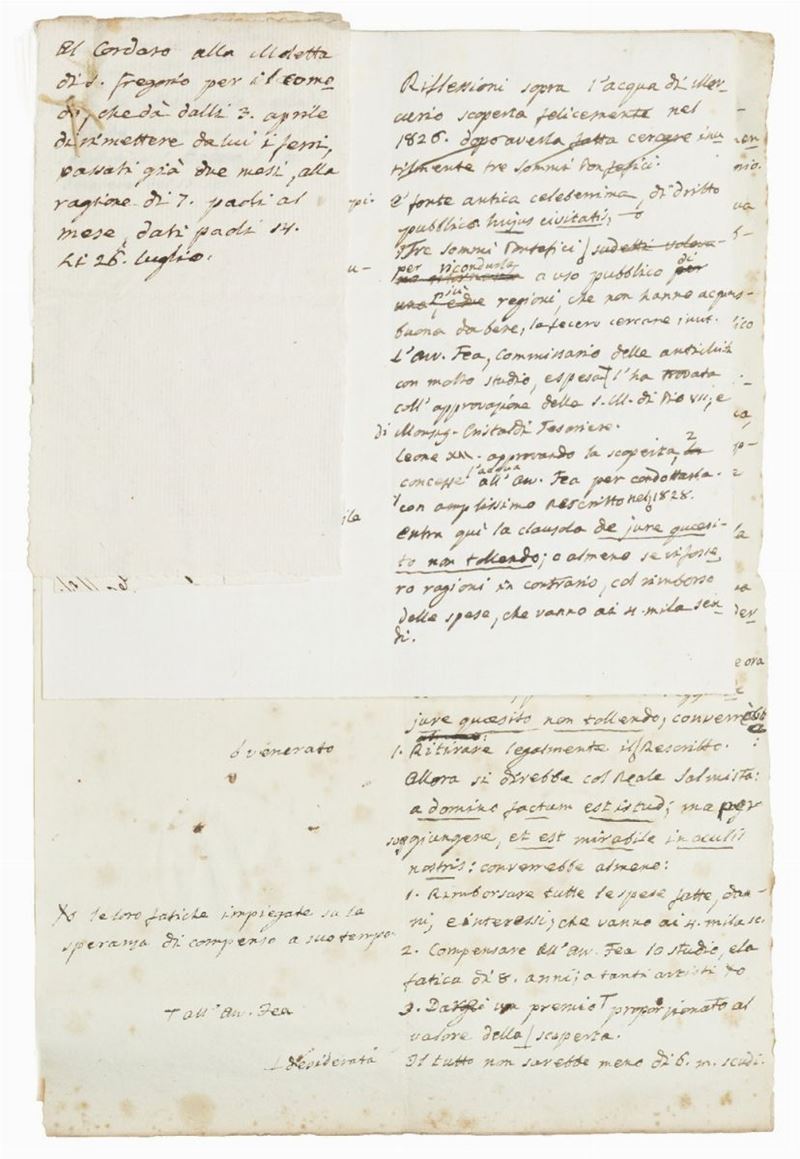 Al Cordaro alla Moletta
di S. Gregorio per il como-
do, che dà dalli 3. aprile
di rimettere da lui i ferri,
passati già due mesi, alla
ragione di 7. paoli al
mese, dati paoli 14.
Li 26. luglio.
Riflessioni sopra l'acqua di Mer-
curio scoperta felicemente nel
1826. dopo averla fatta cercare inu-
tilmente tre sommi Pontefici.
È fonte antica celeberrima, di dritto
pubblico hujus civitatis,
Tre sommi Pontefici sudetti voleva-
per ricondurla a uso pubblico di
più regioni, che non hanno acqua
buona da bere, la fecero cercare inut.
L'Avv. Fea, Commissario delle antichità
con molto studio, e spesa l'ha trovata
coll'approvazione della S. M. di Pio VII; e
di Monsig. Cristaldi Tesoriere.
Leone XII. approvando la scoperta,
concesse l'acqua all'Avv. Fea per condottarla
con amplissimo Rescritto nel 1828.
Entra quì la clausola de jure quæsi-
to non tollendo; o almeno se vi fosse
ro ragioni in contrario, col rimborso
delle spese, che vanno ai 4. mila scu-
di.
jure quæsito non tollendo; converrebbe
1. Ritirare legalmente il Rescritto.
ò venerato
Allora si direbbe col Reale Salmista:
a domino factum est istud; ma per
soggiungere, et est mirabile in oculis
nostris: converrebbe almeno:
1. Rimborsare tutte le spese fatte, dan-
ni, e interessi; che vanno ai 4. mila sc.
2. Compensare all'Avv. Fea lo studio, e la
fatica di 8. anni; a tanti artisti
le loro fatiche impiegate su la
speranza di compenso a suo tempo.
3. Dargli un premio proporzionato al
valore della scoperta.
all'Avv. Fea
desiderata
Il tutto non sarebbe meno di 6. m. scudi.